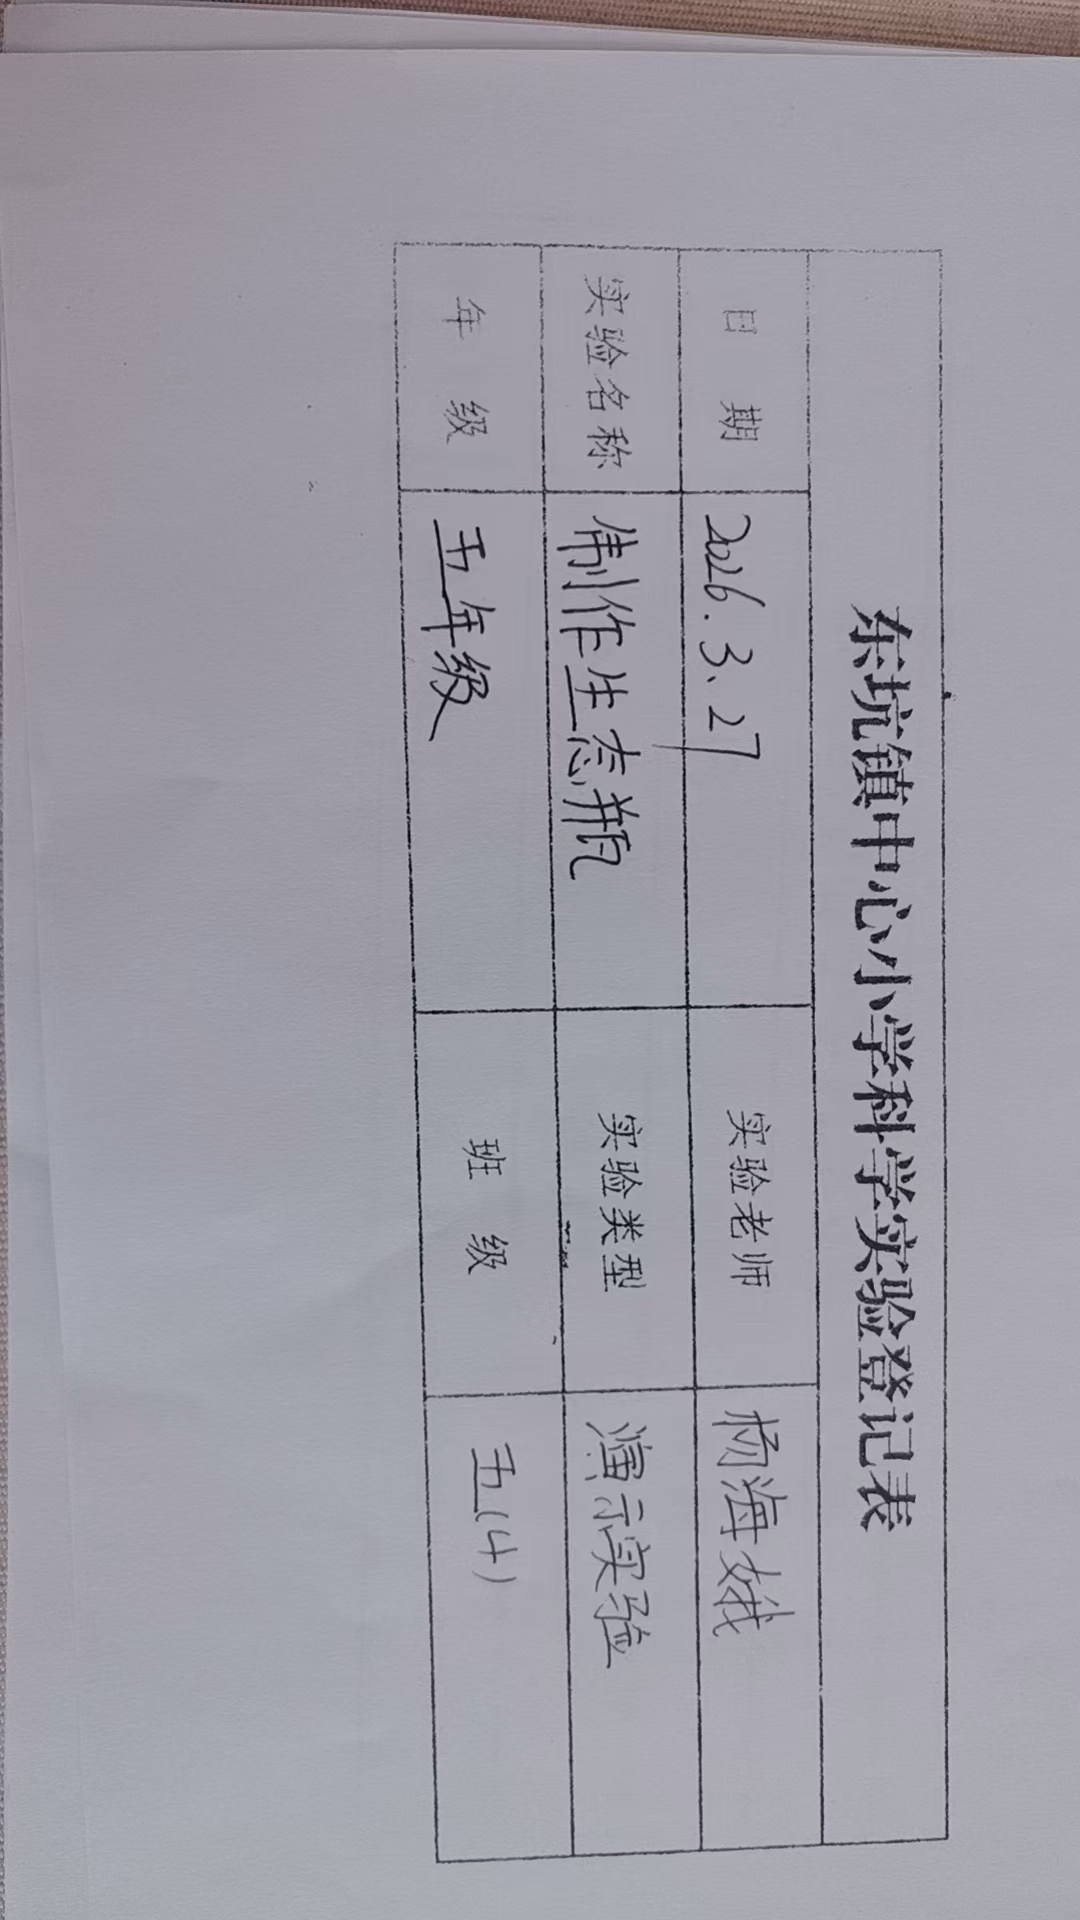 东坑镇中心小学科学实验登记表
日期 2026.3.27 实验老师 杨海娥
实验名称 制作生态瓶 实验类型 演示实验
年级 五年级 班级 五(4)